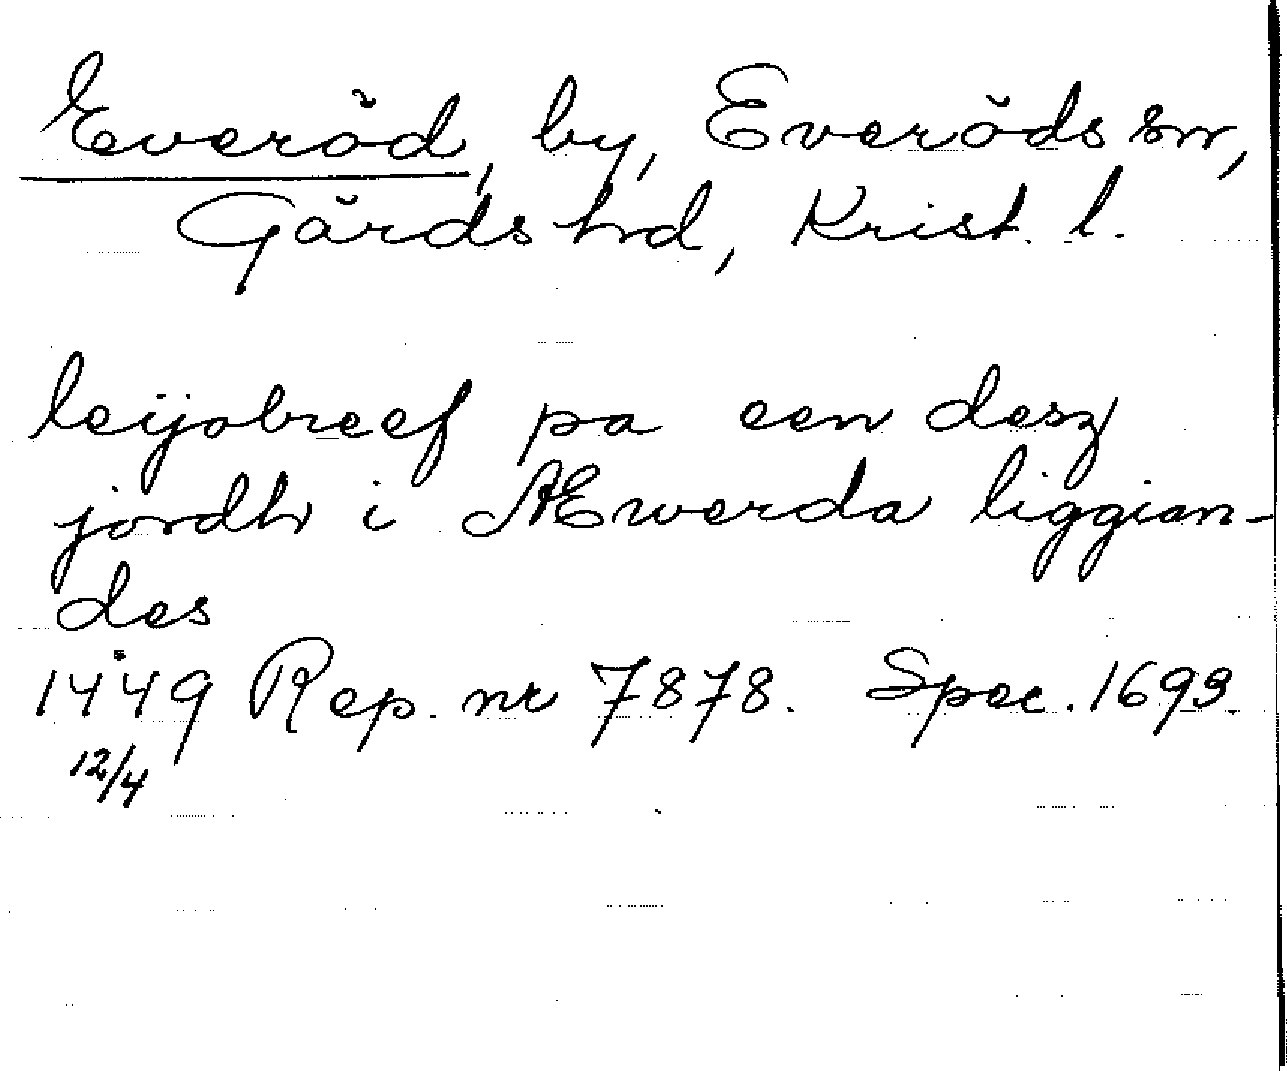 Everöd, by, Everöds sn,
Gärds hd, Krist. l.
leijobreef pa een desz
jordh i Æwerda liggian-
des
1449 Rep. nr 7878. Spec. 1693.
12/4